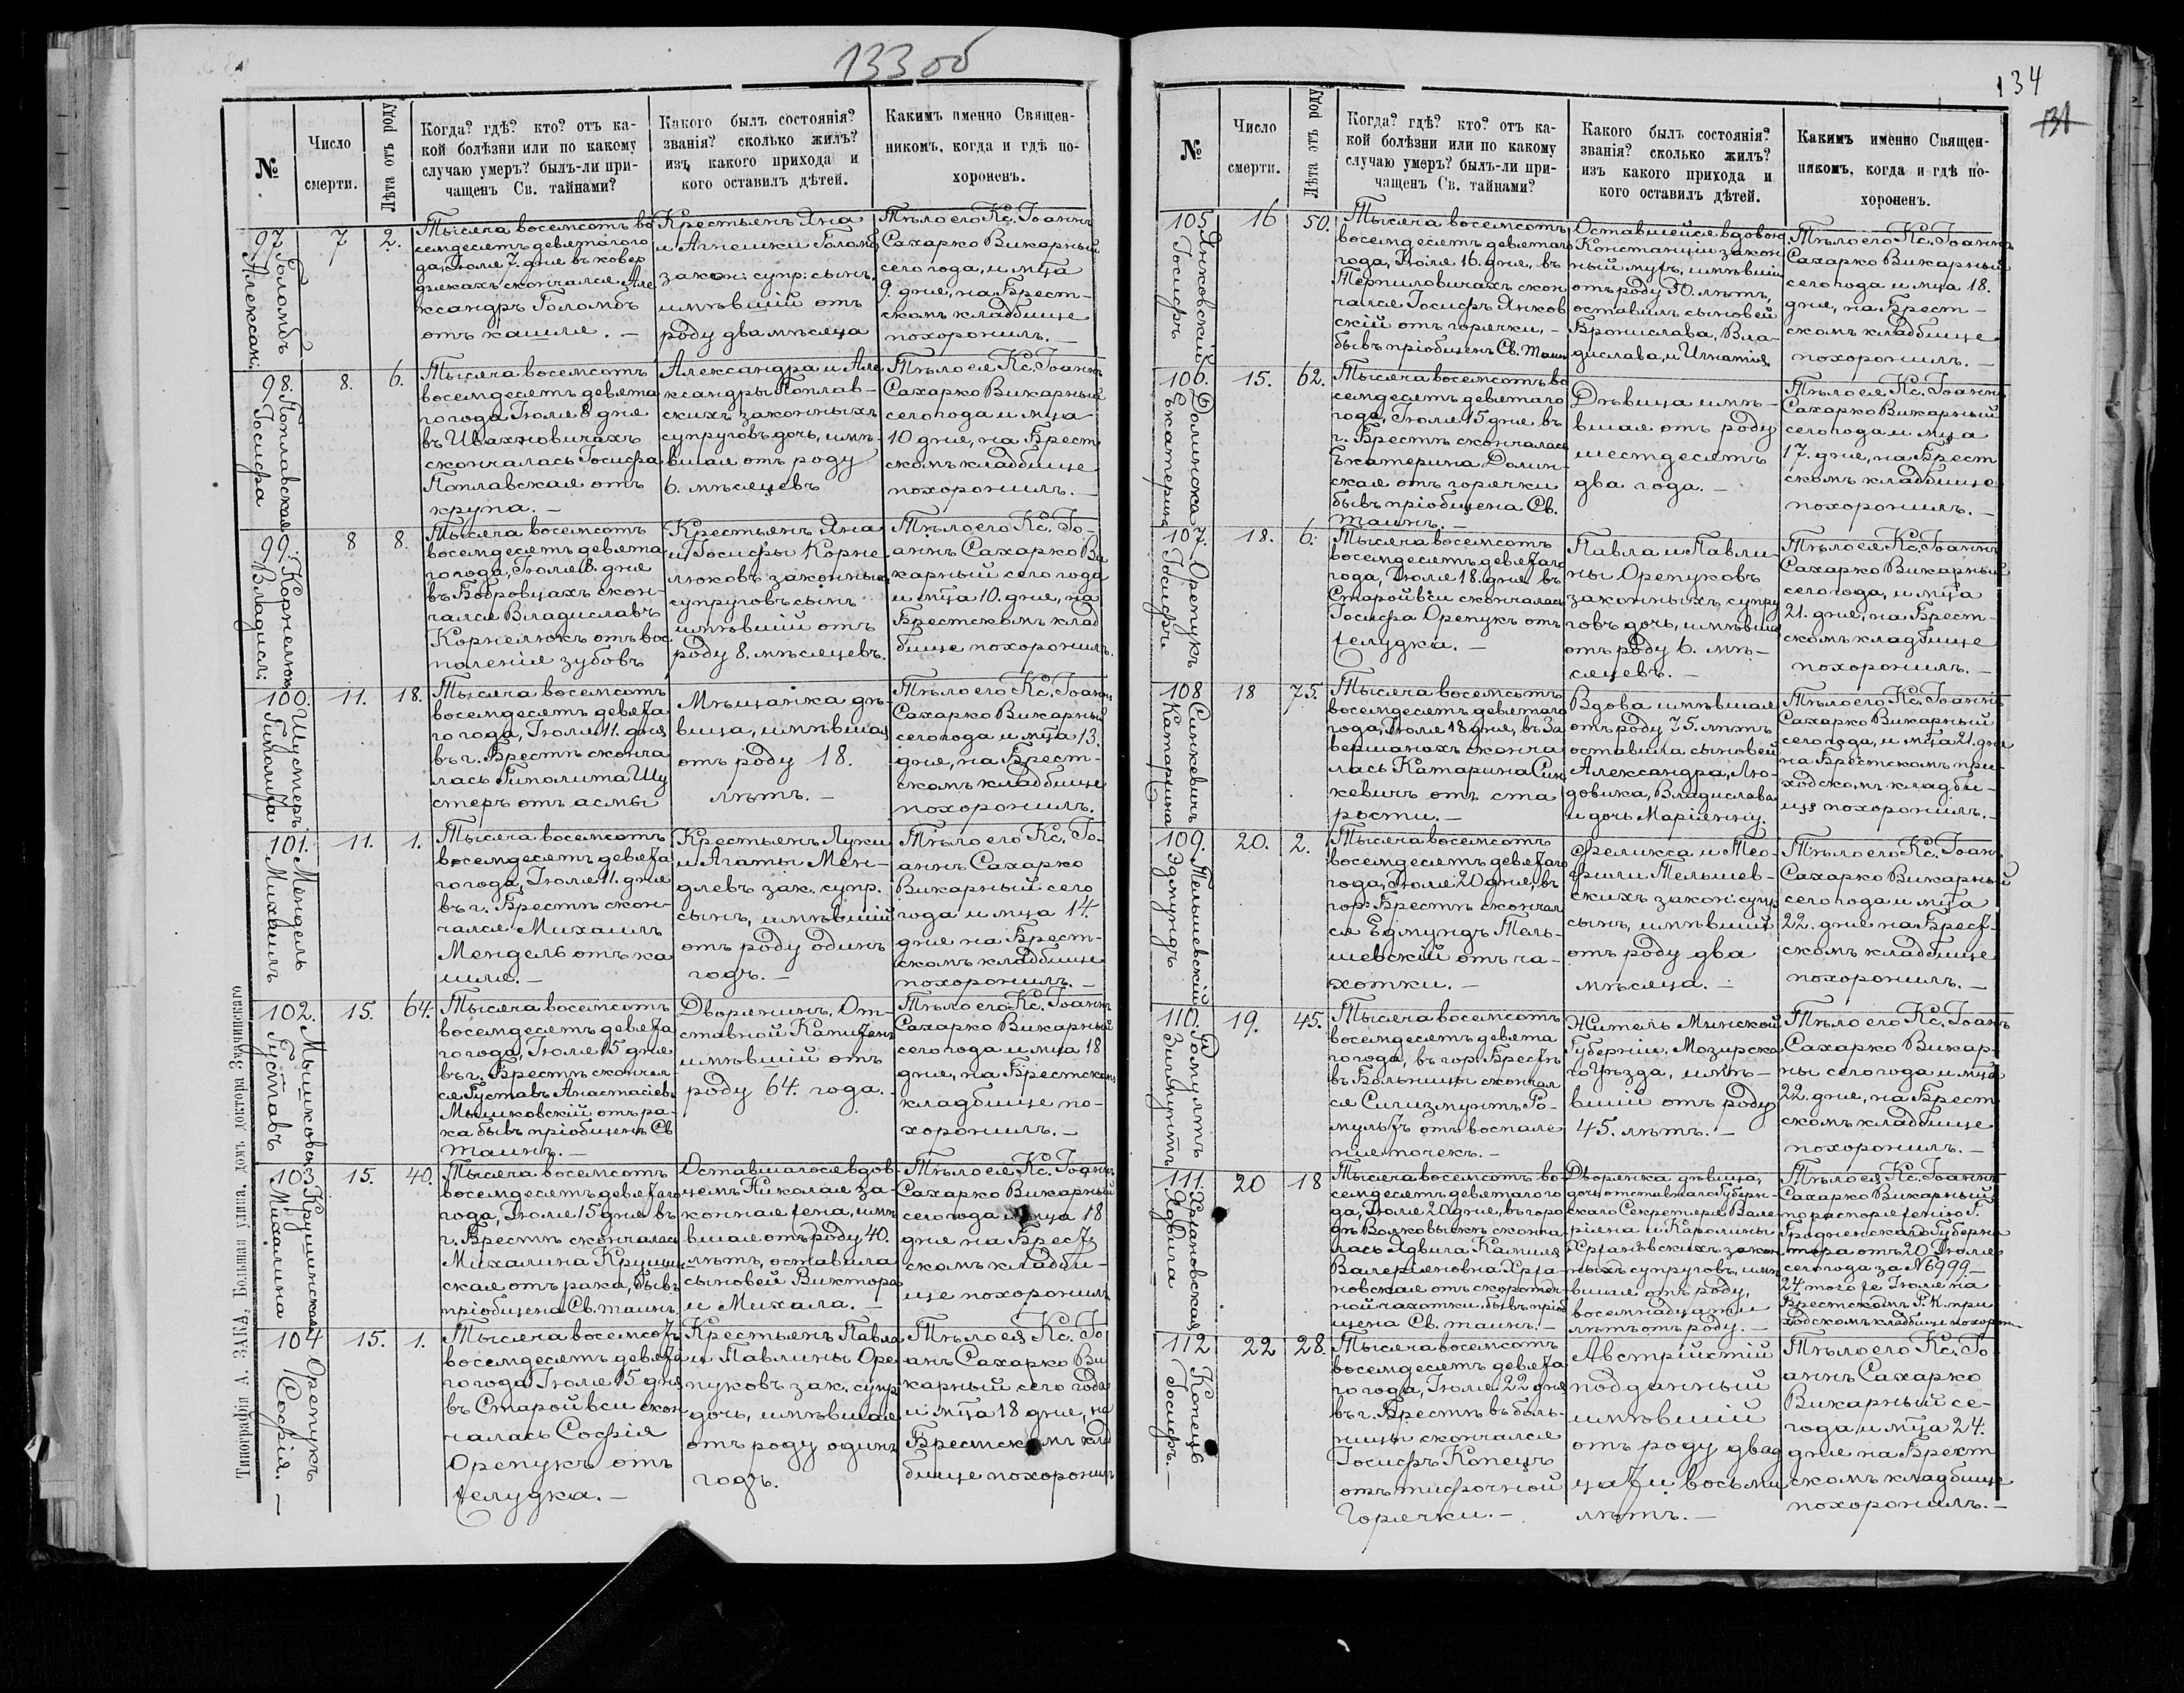 133 об
№
Число
смерти.
Лѣта отъ роду
Когда? гдѣ? кто? отъ ка-
кой болѣзни или по какому
случаю умеръ? былъ-ли при-
чащенъ Св. тайнами?
Какого былъ состоянія?
званія? сколько жилъ?
изъ какого прихода и
кого оставилъ дѣтей.
Какимъ именно Священ-
никомъ, когда и гдѣ по-
хороненъ.
97
Голомбъ
Александ:
7
2.
Тысяча восемсотъ во
семдесятъ девятаго го
да, Іюля 7. дня въ ковер
дякахъ скончался Але
ксандръ Голомбъ
отъ кашля. —
Крестьянъ Яна
и Агнешки Голомб
закон: супр: сынъ,
имѣвшій отъ
роду два мѣсяца
Тѣло его Кс. Іоаннъ
Сахарко Викарный
сего года, и мца
9. дня, на Брест-
скомъ кладбище
похоронилъ. —
98.
Поплавская
Іосифа
8.
6.
Тысяча восемсотъ
восемдесятъ девята
го года Іюля 8 дня
въ Ивахновичахъ
скончалась Іосифа
Поплавская отъ
крупа. —
Александра и Але
ксандры Поплав-
скихъ законныхъ
супруговъ дочь, имѣ-
вшая отъ роду
6. мѣсяцевъ
Тѣло ея Кс. Іоаннъ
Сахарко Викарный
сего года и мца
10 дня, на Брест
скомъ кладбище
похоронилъ. —
99.
Корнелюкъ
Владисл:
8
8.
Тысяча восемсотъ
восемдесятъ девята
го года, Іюля 8. дня
въ Бобровцахъ скон-
чался Владиславъ
Корнелюкъ отъ вос
паленія зубовъ
Крестьянъ Яна
и Іосифы Корне
люковъ законныхъ
супруговъ сынъ
имѣвшій отъ
роду 8. мѣсяцевъ.
Тѣло его Кс. Іо-
аннъ Сахарко Ви
карный сего года
и мца 10. дня, на
Брестскомъ клад
бище похоронилъ.
100.
Шустеръ
Гиполита
11.
18.
Тысяча восемсотъ
восемдесятъ девята
го года, Іюля 11. дня
въ г. Брестѣ сконча
лась Гиполита Шу
стеръ отъ асмы
Мѣщанка дѣ-
вица, имѣвшая
отъ роду 18.
лѣтъ. —
Тѣло его Кс. Іоаннъ
Сахарко Викарный
сего года и мца 13.
дня, на Брест-
скомъ кладбище
похоронилъ.
101.
Мендель
Михаилъ
11.
1.
Тысяча восемсотъ
восемдесятъ девята
го года, Іюля 11. дня
въ г. Брестѣ скон-
чался Михаилъ
Мендель отъ ка
шля. —
Крестьянъ Луки
и Агаты Мен-
длевъ зак. супр.
сынъ, имѣвшій
отъ роду одинъ
годъ. —
Тѣло его Кс. Іо-
аннъ Сахарко
Викарный сего
года и мца 14.
дня на Брест-
скомъ кладбище
похоронилъ. —
102.
Мышковск.
Густавъ
15.
64.
Тысяча восемсотъ
восемдесятъ девята
го года, Іюля 15 дня
въ г. Брестѣ скончал
ся Густавъ Анастасіевъ
Мышковскій отъ ра-
ка бывъ пріобщенъ Св
таинъ. —
Дворянинъ, От-
ставной Капитанъ
имѣвшій отъ
роду 64. года. -
Тѣло его Кс. Іоаннъ
Сахарко Викарный
сего года и мца 18
дня, на Брестскомъ
кладбище по-
хоронилъ. —
103
Крушинская
Михалина
15.
40.
Тысяча восемсотъ
восемдесятъ девятаго
года, Іюля 15 дня въ
г. Брестѣ скончалась
Михалина Крушин
ская отъ рака, бывъ
пріобщена Св. таинъ
Оставшагося вдов-
цемъ Николая за-
конная жена, имѣ
вшая отъ роду 40.
лѣтъ, оставила
сыновей Виктора
и Михала. —
Тѣло ея Кс. Іоаннъ
Сахарко Викарный
сего года и мца 18
дня на Брест
скомъ кладби-
ще похоронилъ
104
Орепукъ
Софія. —
15.
1.
Тысяча восемсотъ
восемдесятъ девята
го года Іюля 15 дня
въ Старойвси скон
чалась Софія
Орепукъ отъ
желудка. —
Крестьянъ Павла
и Павлины Оре
пуковъ зак. супр
дочь, имѣвшая
отъ роду одинъ
годъ.
Тѣло ея Кс. Іо
анъ Сахарко Ви
карный сего года
и мца 18 дня, на
Брестскомъ клад
бище похоронилъ
Типографія А. ЗАКА, Большая улица, домъ доктора Знамѣнскаго
134
131
№
Число
смерти.
Лѣта отъ роду
Когда? гдѣ? кто? отъ ка-
кой болѣзни или по какому
случаю умеръ? былъ-ли при-
чащенъ Св. тайнами?
Какого былъ состоянія?
званія? сколько жилъ?
изъ какого прихода и
кого оставилъ дѣтей.
Какимъ именно Священ-
никомъ, когда и гдѣ по-
хороненъ.
105
Янковскій
Іосифъ
16
50.
Тысяча восемсотъ
восемдесятъ девятаго
года, Іюля 16. дня, въ
Терпиловичахъ скон
чался Іосифъ Янков
скій отъ горячки, -
бывъ пріобщенъ Св. Таинъ
Оставшейся вдовою
Констанціи закон
ный мужъ, имѣвшій
отъ роду 50. лѣтъ,
оставилъ сыновей
Бронислава, Вла-
дислава, и Игнатія
Тѣло его Кс. Іоаннъ
Сахарко Викарный
сего года и мца 18.
дня, на Брест-
скомъ кладбище
похоронилъ. —
106.
Долинска
Екатерина
15.
62.
Тысяча восемсотъ во
семдесятъ девятаго
года, Іюля 15 дня въ
г. Брестѣ скончалась
Екатерина Долин-
ская отъ горячки
бывъ пріобщена Св.
таинъ. —
Дѣвица имѣ-
вшая отъ роду
шестдесятъ
два года. —
Тѣло ея Кс. Іоаннъ
Сахарко Викарный
сего года и мца
17. дня, на Брест
скомъ кладбище
похоронилъ. —
107.
Орепукъ
Іосифъ.
18.
6.
Тысяча восемсотъ
восемдесятъ девятаго
года, Іюля 18. дня въ
Старойвси скончалась
Іосифа Орепукъ отъ
желудка. —
Павла и Павли
ны Орепуковъ
законныхъ супру
говъ дочь, имѣвша
отъ роду 6. мѣ-
сяцевъ. —
Тѣло ея Кс. Іоаннъ
Сахарко Викарный
сего года, и мца
21. дня, на Брест-
скомъ кладбище
похоронилъ. —
108
Синкевичъ
Катарина
18
75.
Тысяча восемсотъ
восемдесятъ девятаго
года, Іюля 18 дня, въ За
вершанахъ сконча
лась Катарина Син
кевичъ отъ ста
рости. —
Вдова имѣвшая
отъ роду 75. лѣтъ
оставила сыновей
Александра, Лю-
довика, Владислава
и дочь Маріянну.
Тѣло его Кс. Іоаннъ
Сахарко Викарный
сего года, и мца 21. дня
на Брестскомъ при-
ходскомъ кладби-
ще похоронилъ. —
109.
Тельшевскій
Эдмундъ
20.
2.
Тысяча восемсотъ
восемдесятъ девятаго
года, Іюля 20 дня, въ
гор: Брестѣ скончал
ся Едмундъ Тель-
шевскій отъ ча-
хотки. —
Феликса и Тео-
фили Тельшев-
скихъ закон: супр
сынъ, имѣвшій
отъ роду два
мѣсяца. —
Тѣло его Кс. Іоанъ
Сахарко Викарный
сего года и мца
22. дня на Брест-
скомъ кладбище
похоронилъ. —
110.
Ромультъ
Зигмунтъ
19.
45.
Тысяча восемсотъ
восемдесятъ девята
го года, въ гор: Брестѣ
въ Больницы скончал
ся Сигизмунтъ Ро-
мультъ отъ воспале
нія почекъ. —
Житель Минской
Губерніи, Мозырска
го Уѣзда, имѣ-
вшій отъ роду
45. лѣтъ. —
Тѣло его Кс. Іоанъ
Сахарко Викар-
ны сего года и мца
22. дня, на Брест
скомъ кладбище
похоронилъ. —
111.
Хржановская
Ядвига
20
18
Тысяча восемсотъ во-
семдесятъ девятаго го
да, Іюля 20 дня, въ горо
дѣ Волковыскѣ сконча-
лась Ядвига Камиля
Валеріяновна Хржа-
новская отъ скоротеч-
ной чахотки, бывъ пріоб
щена Св. таинъ. —
Дворянка дѣвица,
дочь отставнаго Губерн-
скаго Секретаря Вале-
ріяна и Каролины
Хржановскихъ закон
ныхъ супруговъ, имѣ
вшая отъ роду,
восемнадцати
лѣтъ отъ роду. —
Тѣло ея Кс. Іоаннъ
Сахарко Викарный,
по распоряженію Г.
Гродненскаго Губерна
тора отъ 20 Іюля
сего года за № 6999 —
24 того же Іюля на
Брестскомъ Р. К. при
ходскомъ кладбище похорон-
112
Копецъ
Іосифъ. —
22
28.
Тысяча восемсотъ
восемдесятъ девята
го года, Іюля 22 дня
въ г. Брестѣ въ боль-
ницы скончался
Іосифъ Копецъ
отъ тифочной
горячки. —
Австрійстій
подданный
имѣвшій
отъ роду двад
цати восьми
лѣтъ. —
Тѣло его Кс. Іо-
аннъ Сахарко
Викарный се-
года и мца 24.
дня на Брест
скомъ кладбище
похоронилъ. —